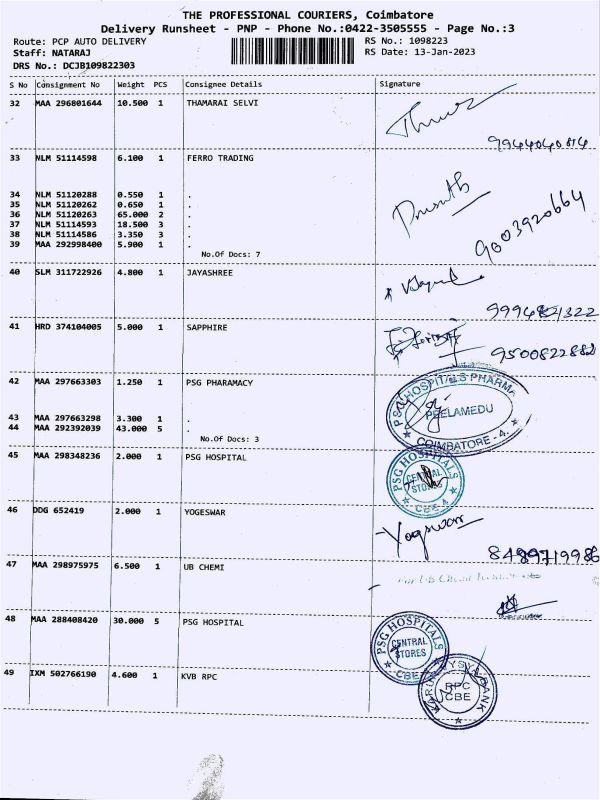 THE PROFESSIONAL COURIERS, Coimbatore
Delivery Runsheet - PNP - Phone No.:0422-3505555 - Page No.:3
Route: PCP AUTO DELIVERY RS No.: 1098223
Staff: NATARAJ RS Date: 13-Jan-2023
DRS No.: DCJB109822303
S No Consignment No Weight PCS Consignee Details Signature
32 MAA 296801644 10.500 1 THAMARAI SELVI
33 NLM 51114598 6.100 1 FERRO TRADING
34 NLM 51120288 0.550 1 .
35 NLM 51120262 0.650 1 .
36 NLM 51120263 65.000 2 .
37 NLM 51114593 18.500 3 .
38 NLM 51114586 3.350 3 .
39 MAA 292998400 5.900 1 .
No.Of Docs: 7
9003920664
40 SLM 311722926 4.800 1 JAYASHREE
41 HRD 374104005 5.000 1 SAPPHIRE
9500822882
42 MAA 297663303 1.250 1 PSG PHARAMACY
PSG HOSPITALS PHARMA
PEELAMEDU
COIMBATORE - 4.
43 MAA 297663298 3.300 1 .
44 MAA 292392039 43.000 5 .
No.Of Docs: 3
45 MAA 298348236 2.000 1 PSG HOSPITAL
PSG HOSPITALS
CENTRAL
STORES
CBE 4
46 DDG 652419 2.000 1 YOGESWAR
Yogeswar
8489719986
47 MAA 298975975 6.500 1 UB CHEMI
48 MAA 288408420 30.000 5 PSG HOSPITAL
PSG HOSPITALS
CENTRAL
STORES
CBE
49 IXM 502766190 4.600 1 KVB RPC
RPC
CBE